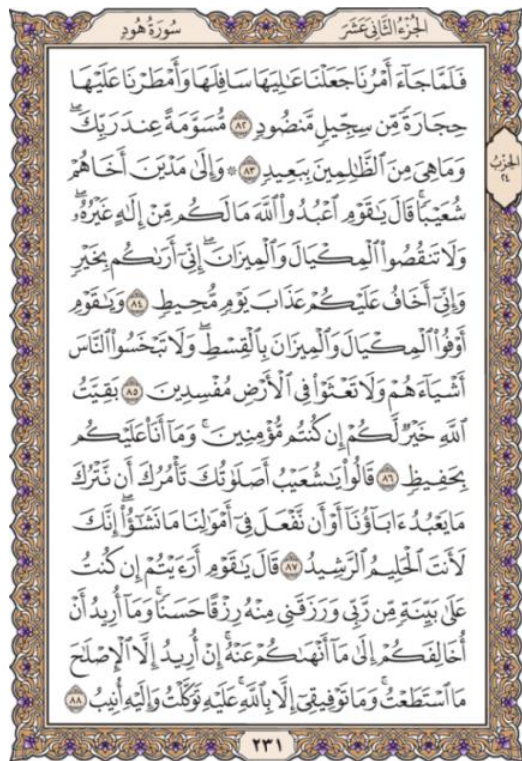 الجُزْءُ الثَّانِي عَشَرَ
سُورَةُ هُودٍ
فَلَمَّا جَآءَ أَمْرُنَا جَعَلْنَا عَٰلِيَهَا سَافِلَهَا وَأَمْطَرْنَا عَلَيْهَا
حِجَارَةً مِّن سِجِّيلٍ مَّنضُودٍ ٨٢ مُّسَوَّمَةً عِندَ رَبِّكَۖ
وَمَا هِىَ مِنَ ٱلظَّٰلِمِينَ بِبَعِيدٍ ٨٣ ۞ وَإِلَىٰ مَدْيَنَ أَخَاهُمْ
الحِزْبُ
٢٤
شُعَيْبًاۚ قَالَ يَٰقَوْمِ ٱعْبُدُوا۟ ٱللَّهَ مَا لَكُم مِّنْ إِلَٰهٍ غَيْرُهُۥۖ
وَلَا تَنقُصُوا۟ ٱلْمِكْيَالَ وَٱلْمِيزَانَۖ إِنِّىٓ أَرَىٰكُم بِخَيْرٍ
وَإِنِّىٓ أَخَافُ عَلَيْكُمْ عَذَابَ يَوْمٍ مُّحِيطٍ ٨٤ وَيَٰقَوْمِ
أَوْفُوا۟ ٱلْمِكْيَالَ وَٱلْمِيزَانَ بِٱلْقِسْطِۖ وَلَا تَبْخَسُوا۟ ٱلنَّاسَ
أَشْيَآءَهُمْ وَلَا تَعْثَوْا۟ فِى ٱلْأَرْضِ مُفْسِدِينَ ٨٥ بَقِيَّتُ
ٱللَّهِ خَيْرٌ لَّكُمْ إِن كُنتُم مُّؤْمِنِينَۚ وَمَآ أَنَا۠ عَلَيْكُم
بِحَفِيظٍ ٨٦ قَالُوا۟ يَٰشُعَيْبُ أَصَلَوٰتُكَ تَأْمُرُكَ أَن نَّتْرُكَ
مَا يَعْبُدُ ءَابَآؤُنَآ أَوْ أَن نَّفْعَلَ فِىٓ أَمْوَٰلِنَا مَا نَشَٰٓؤُا۟ۖ إِنَّكَ
لَأَنتَ ٱلْحَلِيمُ ٱلرَّشِيدُ ٨٧ قَالَ يَٰقَوْمِ أَرَءَيْتُمْ إِن كُنتُ
عَلَىٰ بَيِّنَةٍ مِّن رَّبِّى وَرَزَقَنِى مِنْهُ رِزْقًا حَسَنًاۚ وَمَآ أُرِيدُ أَنْ
أُخَالِفَكُمْ إِلَىٰ مَآ أَنْهَىٰكُمْ عَنْهُۚ إِنْ أُرِيدُ إِلَّا ٱلْإِصْلَٰحَ
مَا ٱسْتَطَعْتُۚ وَمَا تَوْفِيقِىٓ إِلَّا بِٱللَّهِۚ عَلَيْهِ تَوَكَّلْتُ وَإِلَيْهِ أُنِيبُ ٨٨
٢٣١